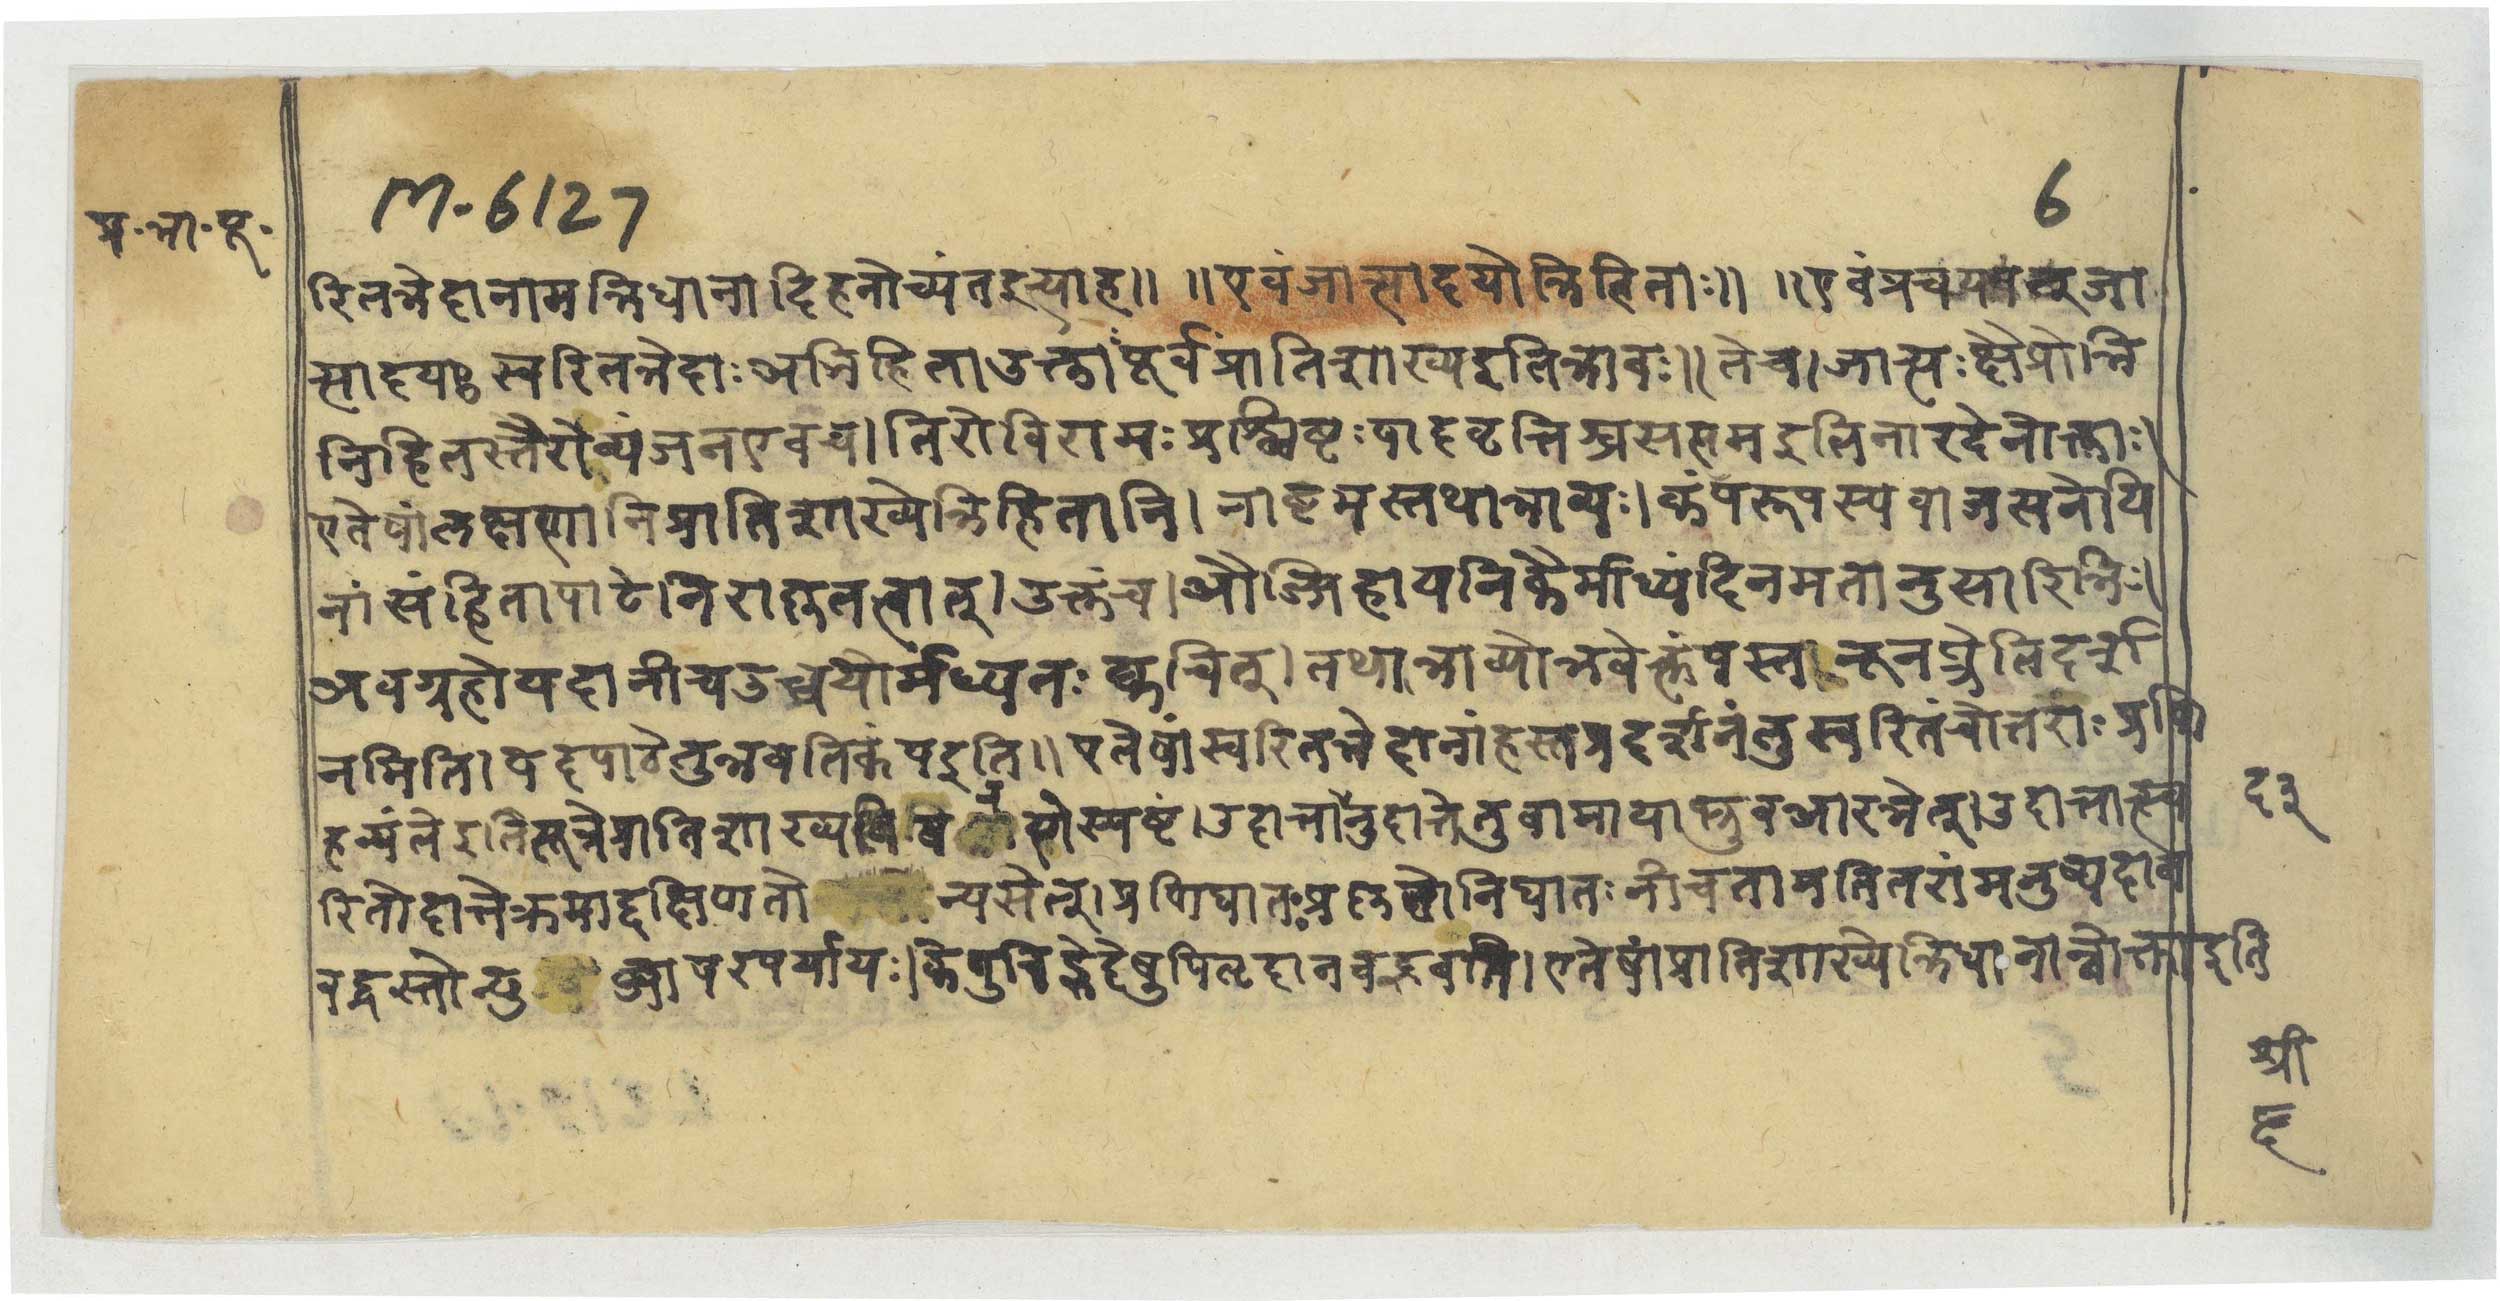 M-6127
6
प्र॰ भा॰ सू॰
रितभेदानामभिधानादिहनोच्यंतइत्याह॥ ॥एवंजात्यादयोभिहिताः॥ ॥एवंप्रचयवत्जा
त्यादयः स्वरितभेदाः अभिहिताउक्ताः पूर्वंप्रातिशाख्यइतिभावः॥ तेच। जात्यः क्षैप्रोभि
निहितस्तैरोव्यंजनएवच। तिरोविरामः प्रश्लिष्टः पादवृत्तिश्चसप्तमइतिनारदेनोक्ताः।
एतेषांलक्षणानिप्रातिशाख्येभिहितानि। नाष्टमस्तथाभाव्यः। कंपरूपस्यवाजसनेयि
नांसंहितापाठेनिराकृतत्वात्। उक्तंच। औज्जिहायनिकैर्माध्यंदिनमतानुसारिभिः।
अवग्रहोयदानीचउच्चयोर्मध्यतः क्वचित्। तथाभाव्योभवेत्कंपस्त नूनप्त्रेतिदर्श
नमिति। पदपाठेतुभवतिकंपइति॥ एतेषांस्वरितभेदानांहस्तप्रदर्शनंतुस्वरितंचोत्तराः प्रणि
हन्यंतेइतिसूत्रेप्रातिशाख्य स्पष्टं। उदात्तानुदात्तेतुवामाया भ्रुवआरभेत्। उदात्तात्स्व
रितोदात्तेक्रमाद्दक्षिणतो न्यसेत्। प्रणिघातः निघातः नीचतामतितरांमनुष्यदान
वद्धस्तोन्यु परपर्यायः। केषुचिद्भेदेषुपितृदानवद्भवति। एतेषांप्रातिशाख्येभिधानान्नोक्ताइति
श्री
६